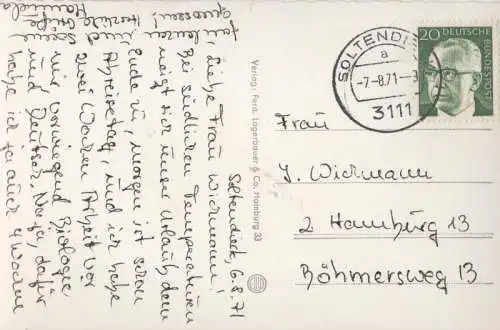 Soltendieck, 6.8.71
Liebe Frau Wichmann!
Bei südlichen Temperaturen
neigt sich unser Urlaub dem
Ende zu, morgen ist schon
Abreisetag, und ich habe
zwei Wochen Arbeit vor
mir, vorwiegend Biologie
und Deutsch. Na ja, dafür
habe ich ja auch 4 Wochen
genossen!
herzliche
Grüße
Verlag: Ferd. Lagerbauer & Co., Hamburg 33
SOLTENDI
a
-7.-8.71-
3111
20
DEUTSCHE
BUNDESPOST
Frau
J. Wichmann
2 Hamburg 13
Böhmersweg 13